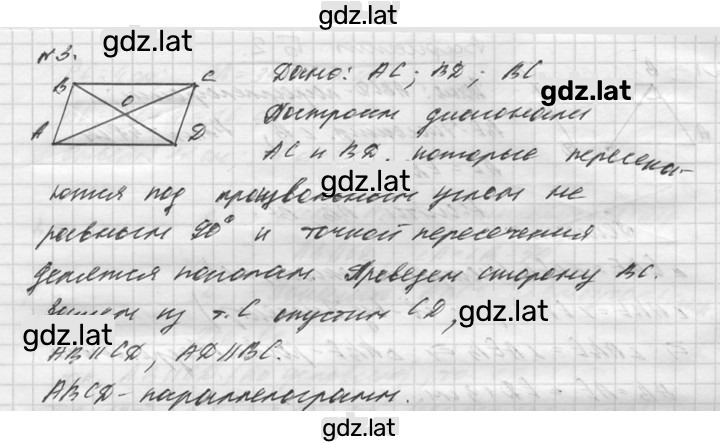 gdz.lat
N3.
gdz.lat
B C
O
A D
Дано: AC; BD; BC
gdz.lat
Построим диагонали
AC и BD. которые пересека-
gdz.lat
ются под произвольным углом не
равным 90° и точкой пересечения
делятся пополам. Проведем сторону BC.
из т. C опустим CD,
gdz.lat
gdz.lat
AB||CD, AD||BC.
ABCD - параллелограмм.
gdz.lat